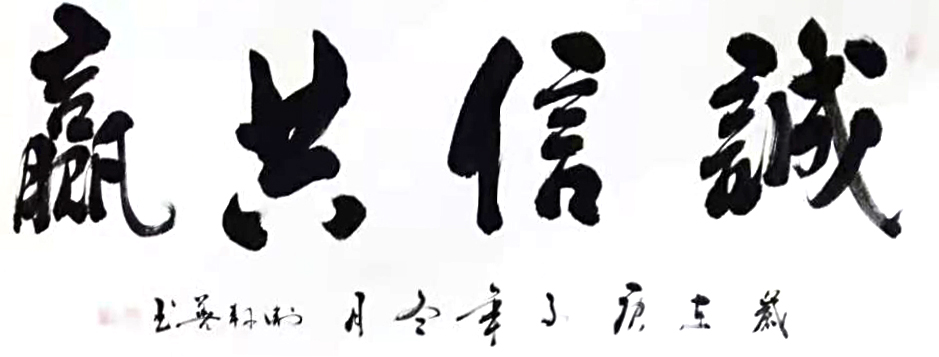 誠信共贏
歲在庚子年冬月
書